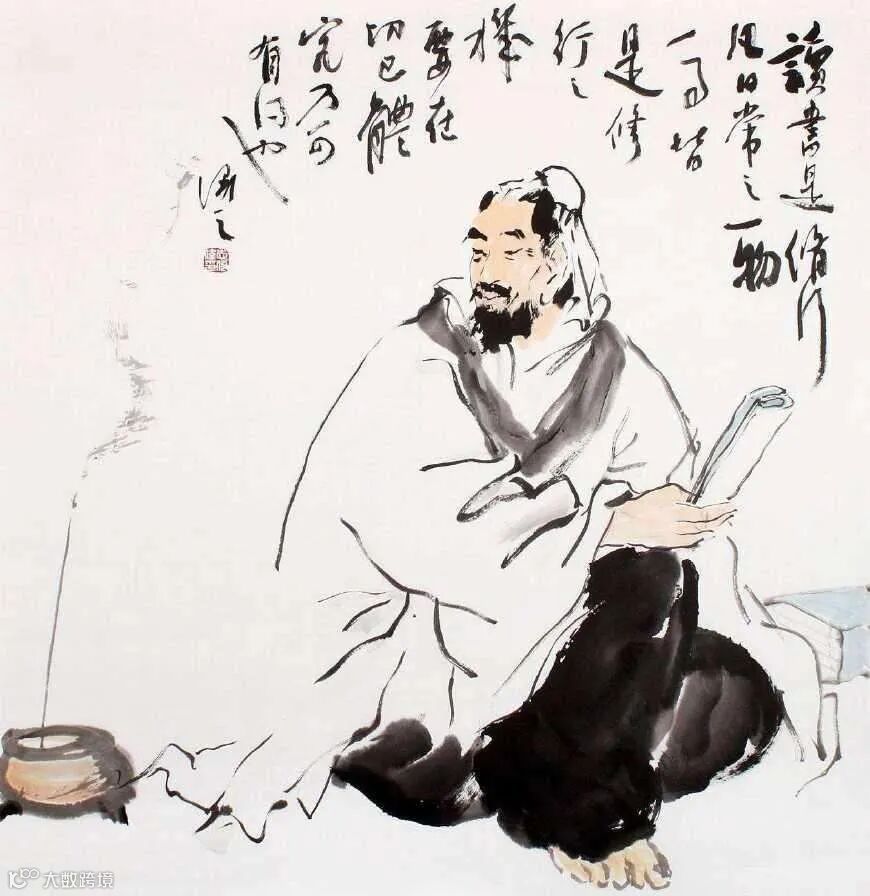 讀書是脩行
凡日常之一物
一事皆
是修
行之
機
要在
切己體
究乃可
有得也
大数跨境